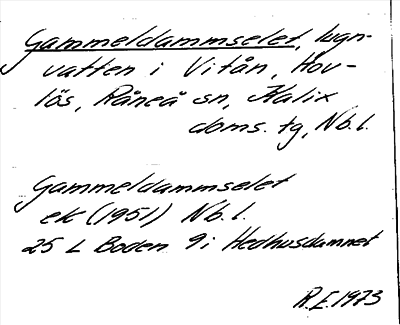 Gammeldammselet, lugn-
vatten i Vitån, Hov-
lös, Råneå sn, Kalix
doms. tg, Nb. l.
Gammeldammselet
ek (1951) Nb. l.
25 L Boden 9i Hedhusdammet
R.E. 1973